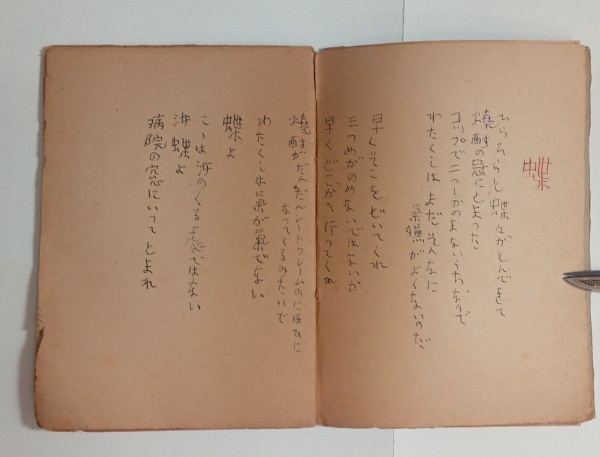 蝶
ひらひらと蝶々がとんできて
焼酎の冠にとまった
コップで二つしかのまないうちなので
わたくしはまだそんなに
気嫌がよくないのだ
早くそこをどいてくれ
三つめがのめないではないか
早くどこかへ行ってくれ
焼酎がだんだんレートクレームのに
なってくるみたいで
わたくしは気が気でない
蝶よ
こゝはのくる處ではない
蝶よ
病院の窓にいってとまれ